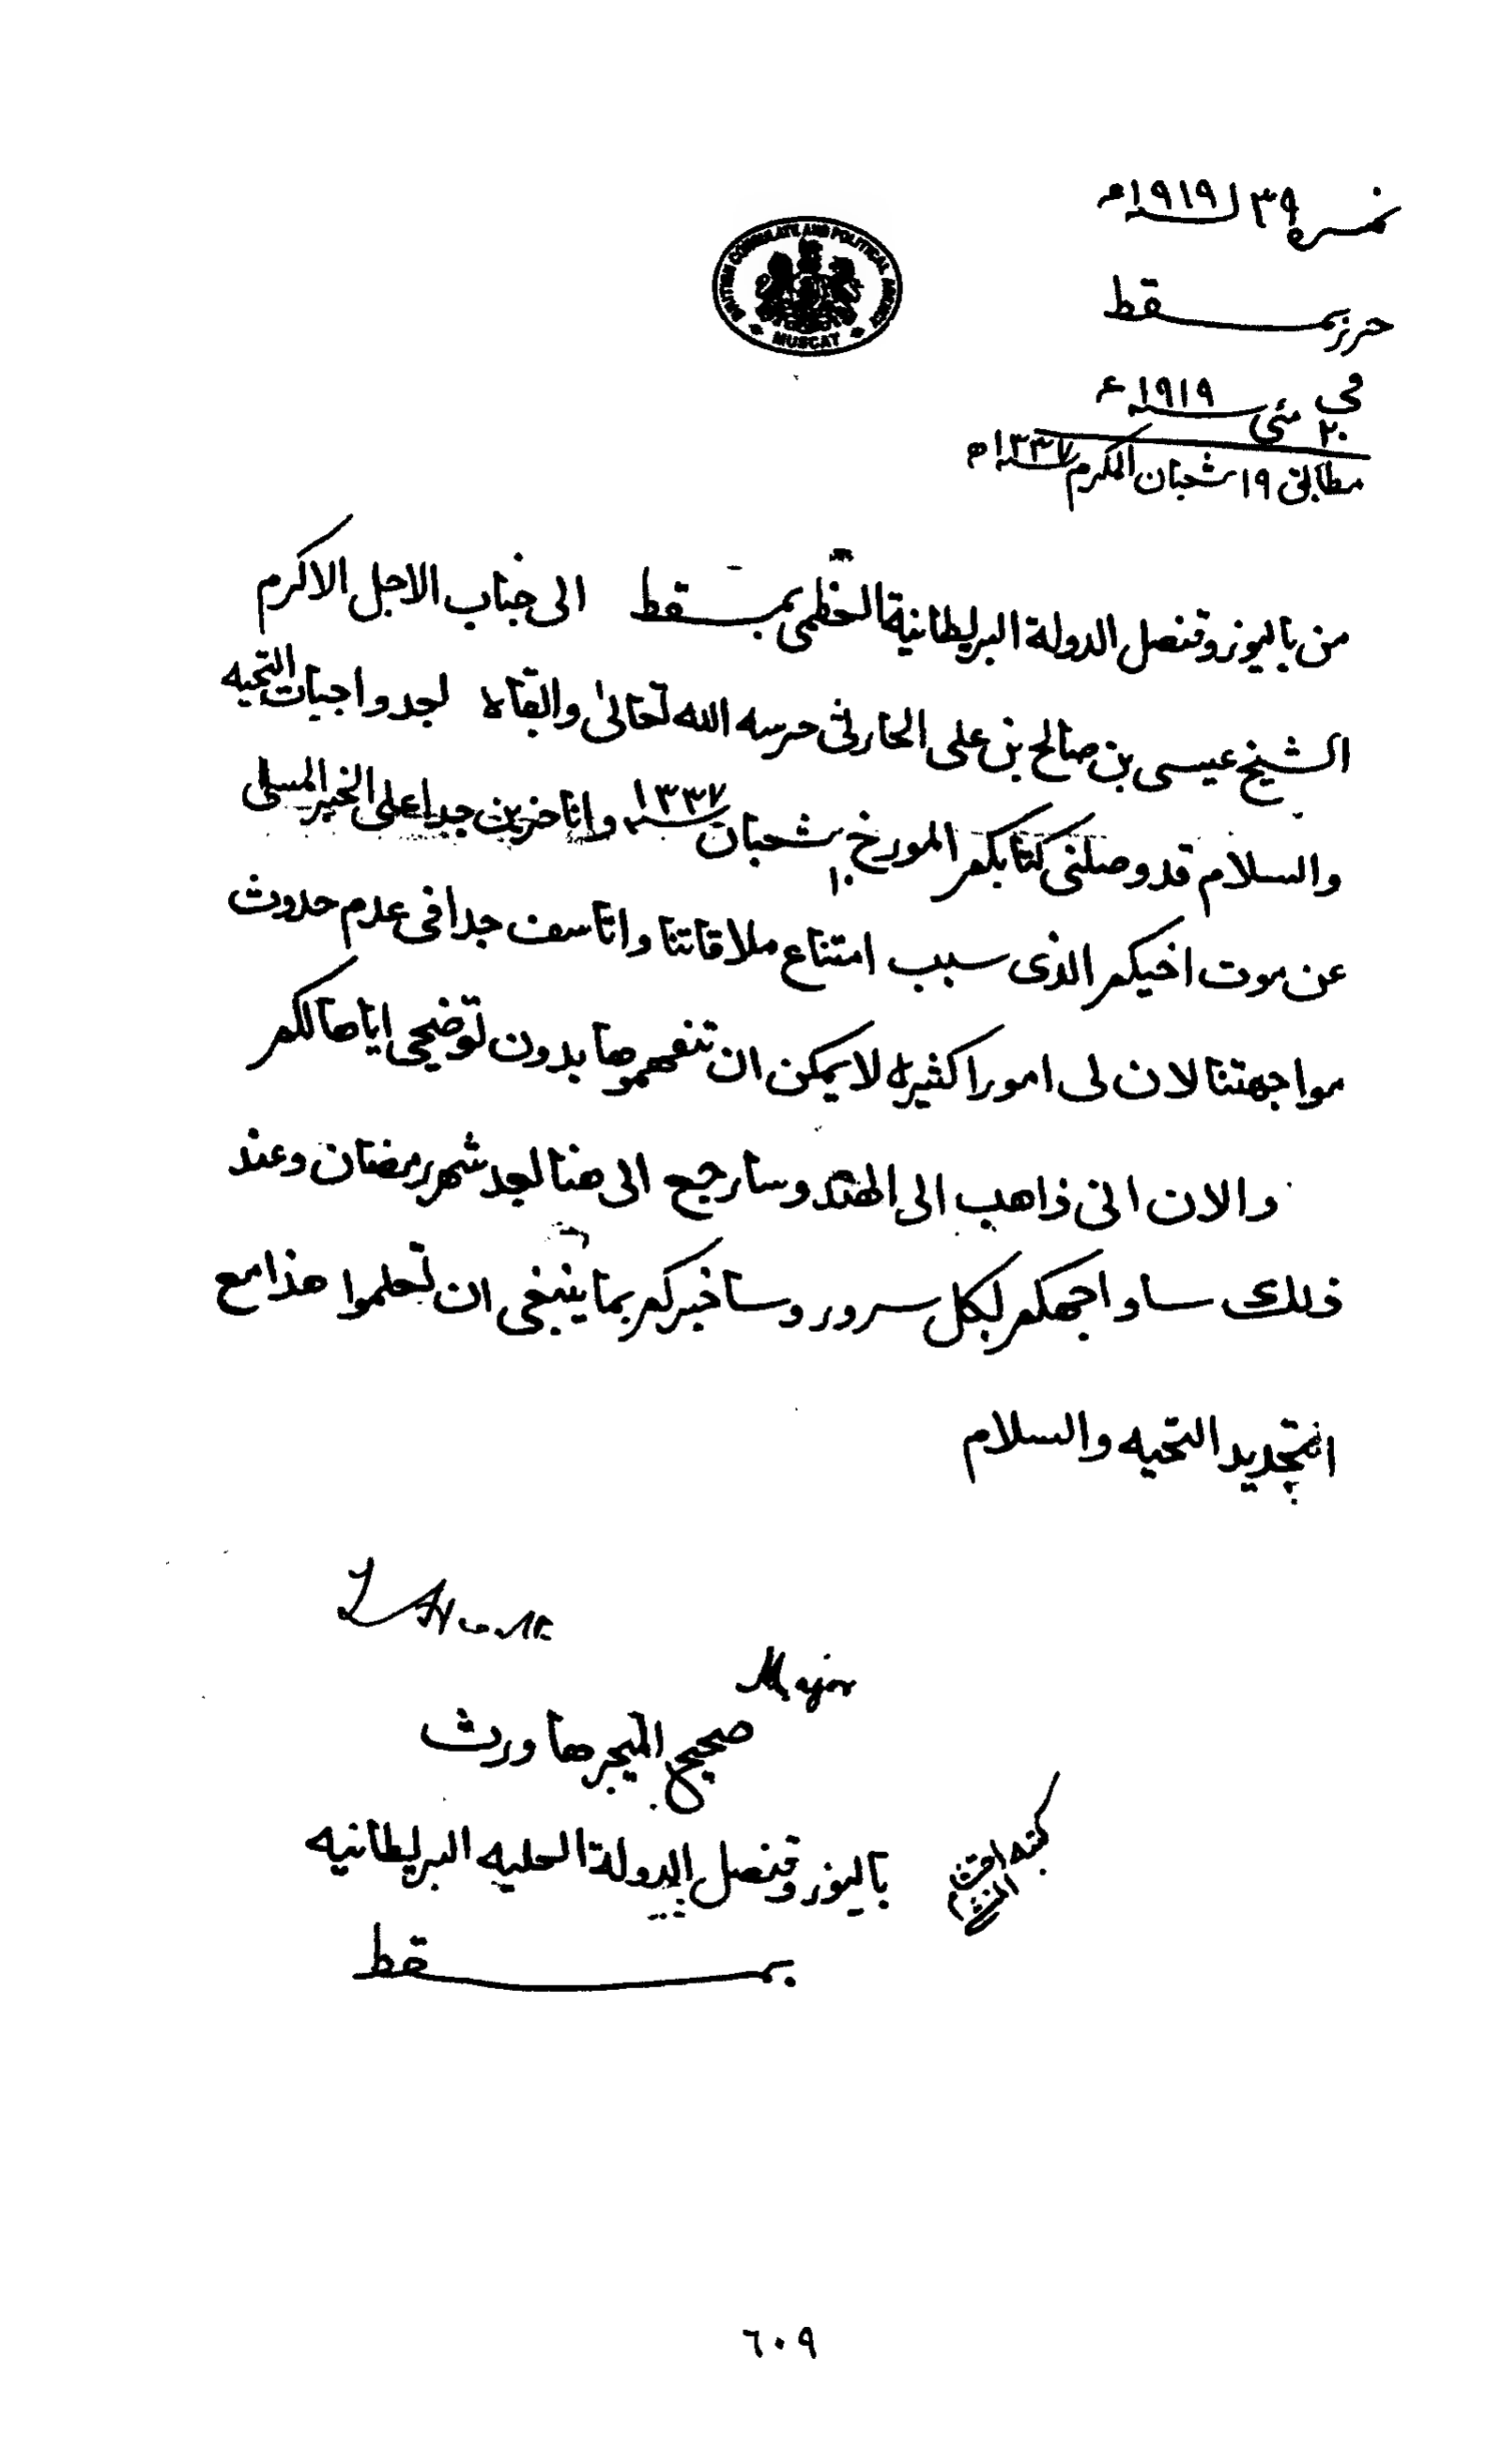 نمره ٣٩ سنه ١٩١٩م
BRITISH CONSULATE AND POLITICAL AGENCY
MUSCAT
حرر بمسقط
في ٢٠ مئى سنه ١٩١٩ء
مطابق ١٩ شعبان المكرم سنه ١٣٣٧ه
من باليوز وقنصل الدولة البريطانية العظمى بمسقط الى جناب الاجل الاكرم
الشيخ عيسى بن صالح بن على الحارثى حرسه الله تعالىٰ وابقاه لعد واجبات التحيه
والسلام قد وصلنى كتابكم المورخ ١٠ شعبان سنه ١٣٣٧ وانا حزين جدا على الخبر المسلى
عن موت اخيكم الذى سبب امتناع ملاقاتنا واتاسف جدا فى عدم حدوث
مواجهتنا لان لى امورا كثيره لا يمكن ان تفهموها بدون توضيحى اياها لكم
والان انى ذاهب الى الهند وسارجع الى هنا بعد شهر رمضان وعند
ذلك ساواجهكم بكل سرور وساخبركم بما ينبغى ان تعلموا هذا مع
تجديد التحيه والسلام
Major
صحيح الميجر هاورث
باليوز وقنصل الدولة العليه البريطانيه
بمسقط
٦٠٩